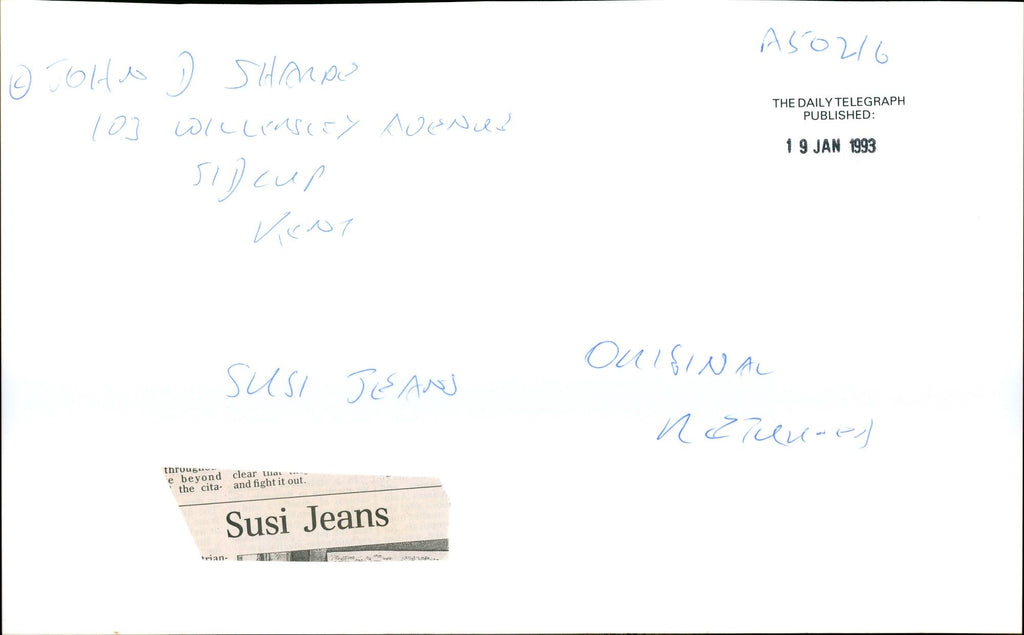 A50216
© JOHN D SHARP
103 WILLERSLEY AVENUE
SIDCUP
KENT
THE DAILY TELEGRAPH
PUBLISHED:
19 JAN 1993
SUSI JEANS
ORIGINAL
RETURNED
e beyond clear that
the cita- and fight it out.
Susi Jeans